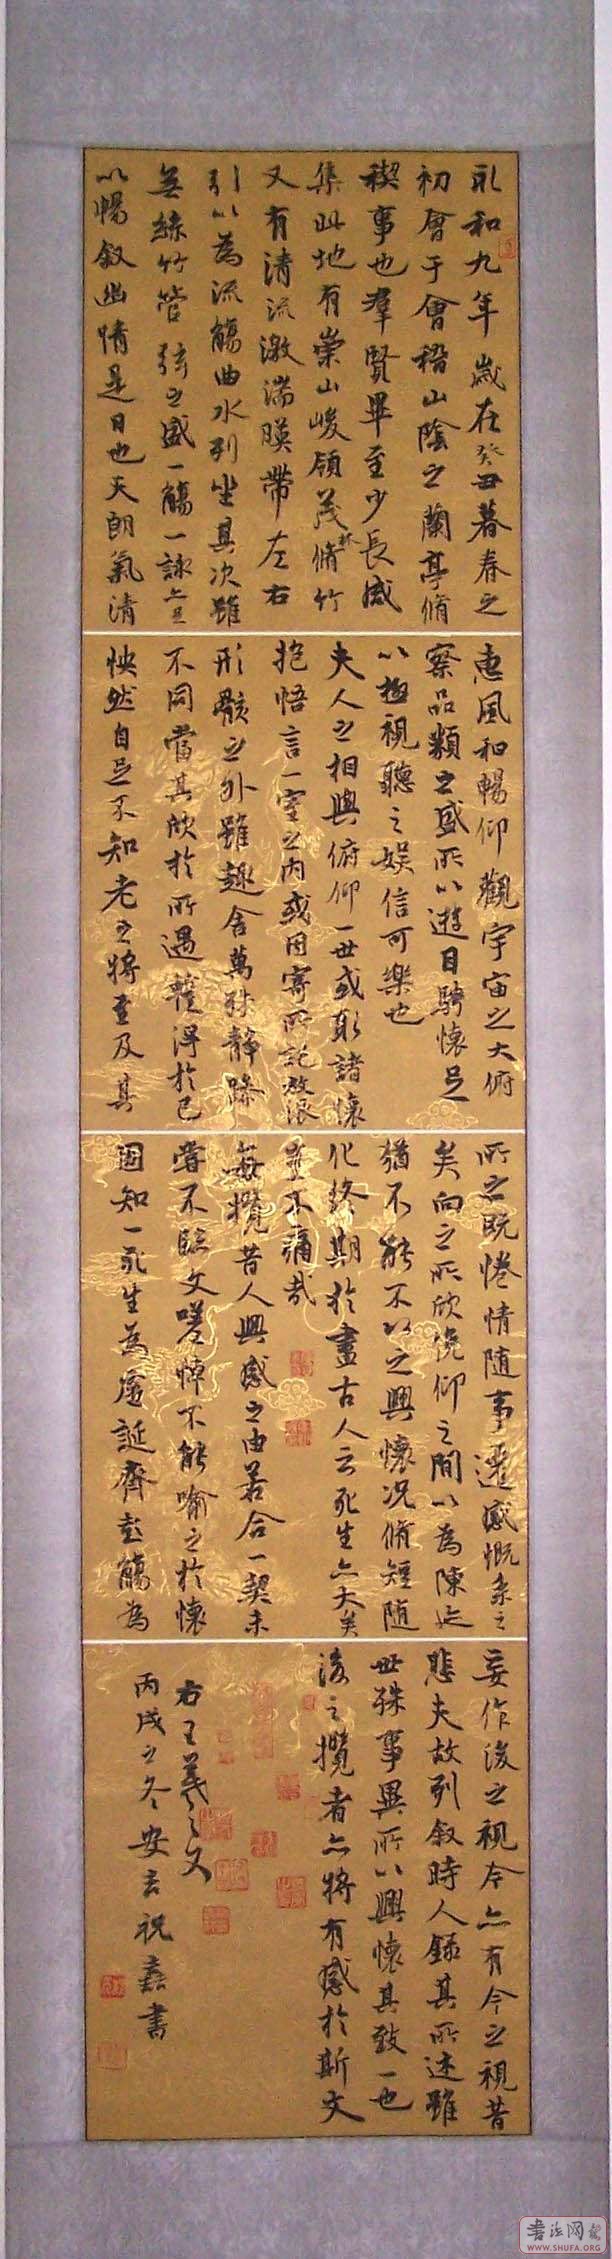 永和九年歲在癸丑暮春之
初會于會稽山陰之蘭亭脩
稧事也羣賢畢至少長咸
集此地有崇山峻領茂林脩竹
又有清流激湍暎帶左右
引以為流觴曲水列坐其次雖
無絲竹管弦之盛一觴一詠亦足
以暢叙幽情是日也天朗氣清
惠風和暢仰觀宇宙之大俯
察品類之盛所以遊目騁懷足
以極視聽之娛信可樂也
夫人之相與俯仰一世或取諸懷
抱悟言一室之內或因寄所託放浪
形骸之外雖趣舍萬殊靜躁
不同當其欣於所遇暫得於己
怏然自足不知老之將至及其
所之既惓情隨事遷感慨系之
矣向之所欣俛仰之間以為陳迹
猶不能不以之興懷況脩短隨
化終期於盡古人云死生亦大矣
豈不痛哉
每攬昔人興感之由若合一契未
嘗不臨文嗟悼不能喻之於懷
固知一死生為虛誕齊彭殤為
妄作後之視今亦有今之視昔
悲夫故列叙時人錄其所述雖
世殊事異所以興懷其致一也
後之攬者亦將有感於斯文
右王羲之文
丙戌之冬安玄祝嘉書
書法网
WWW.SHUFA.ORG